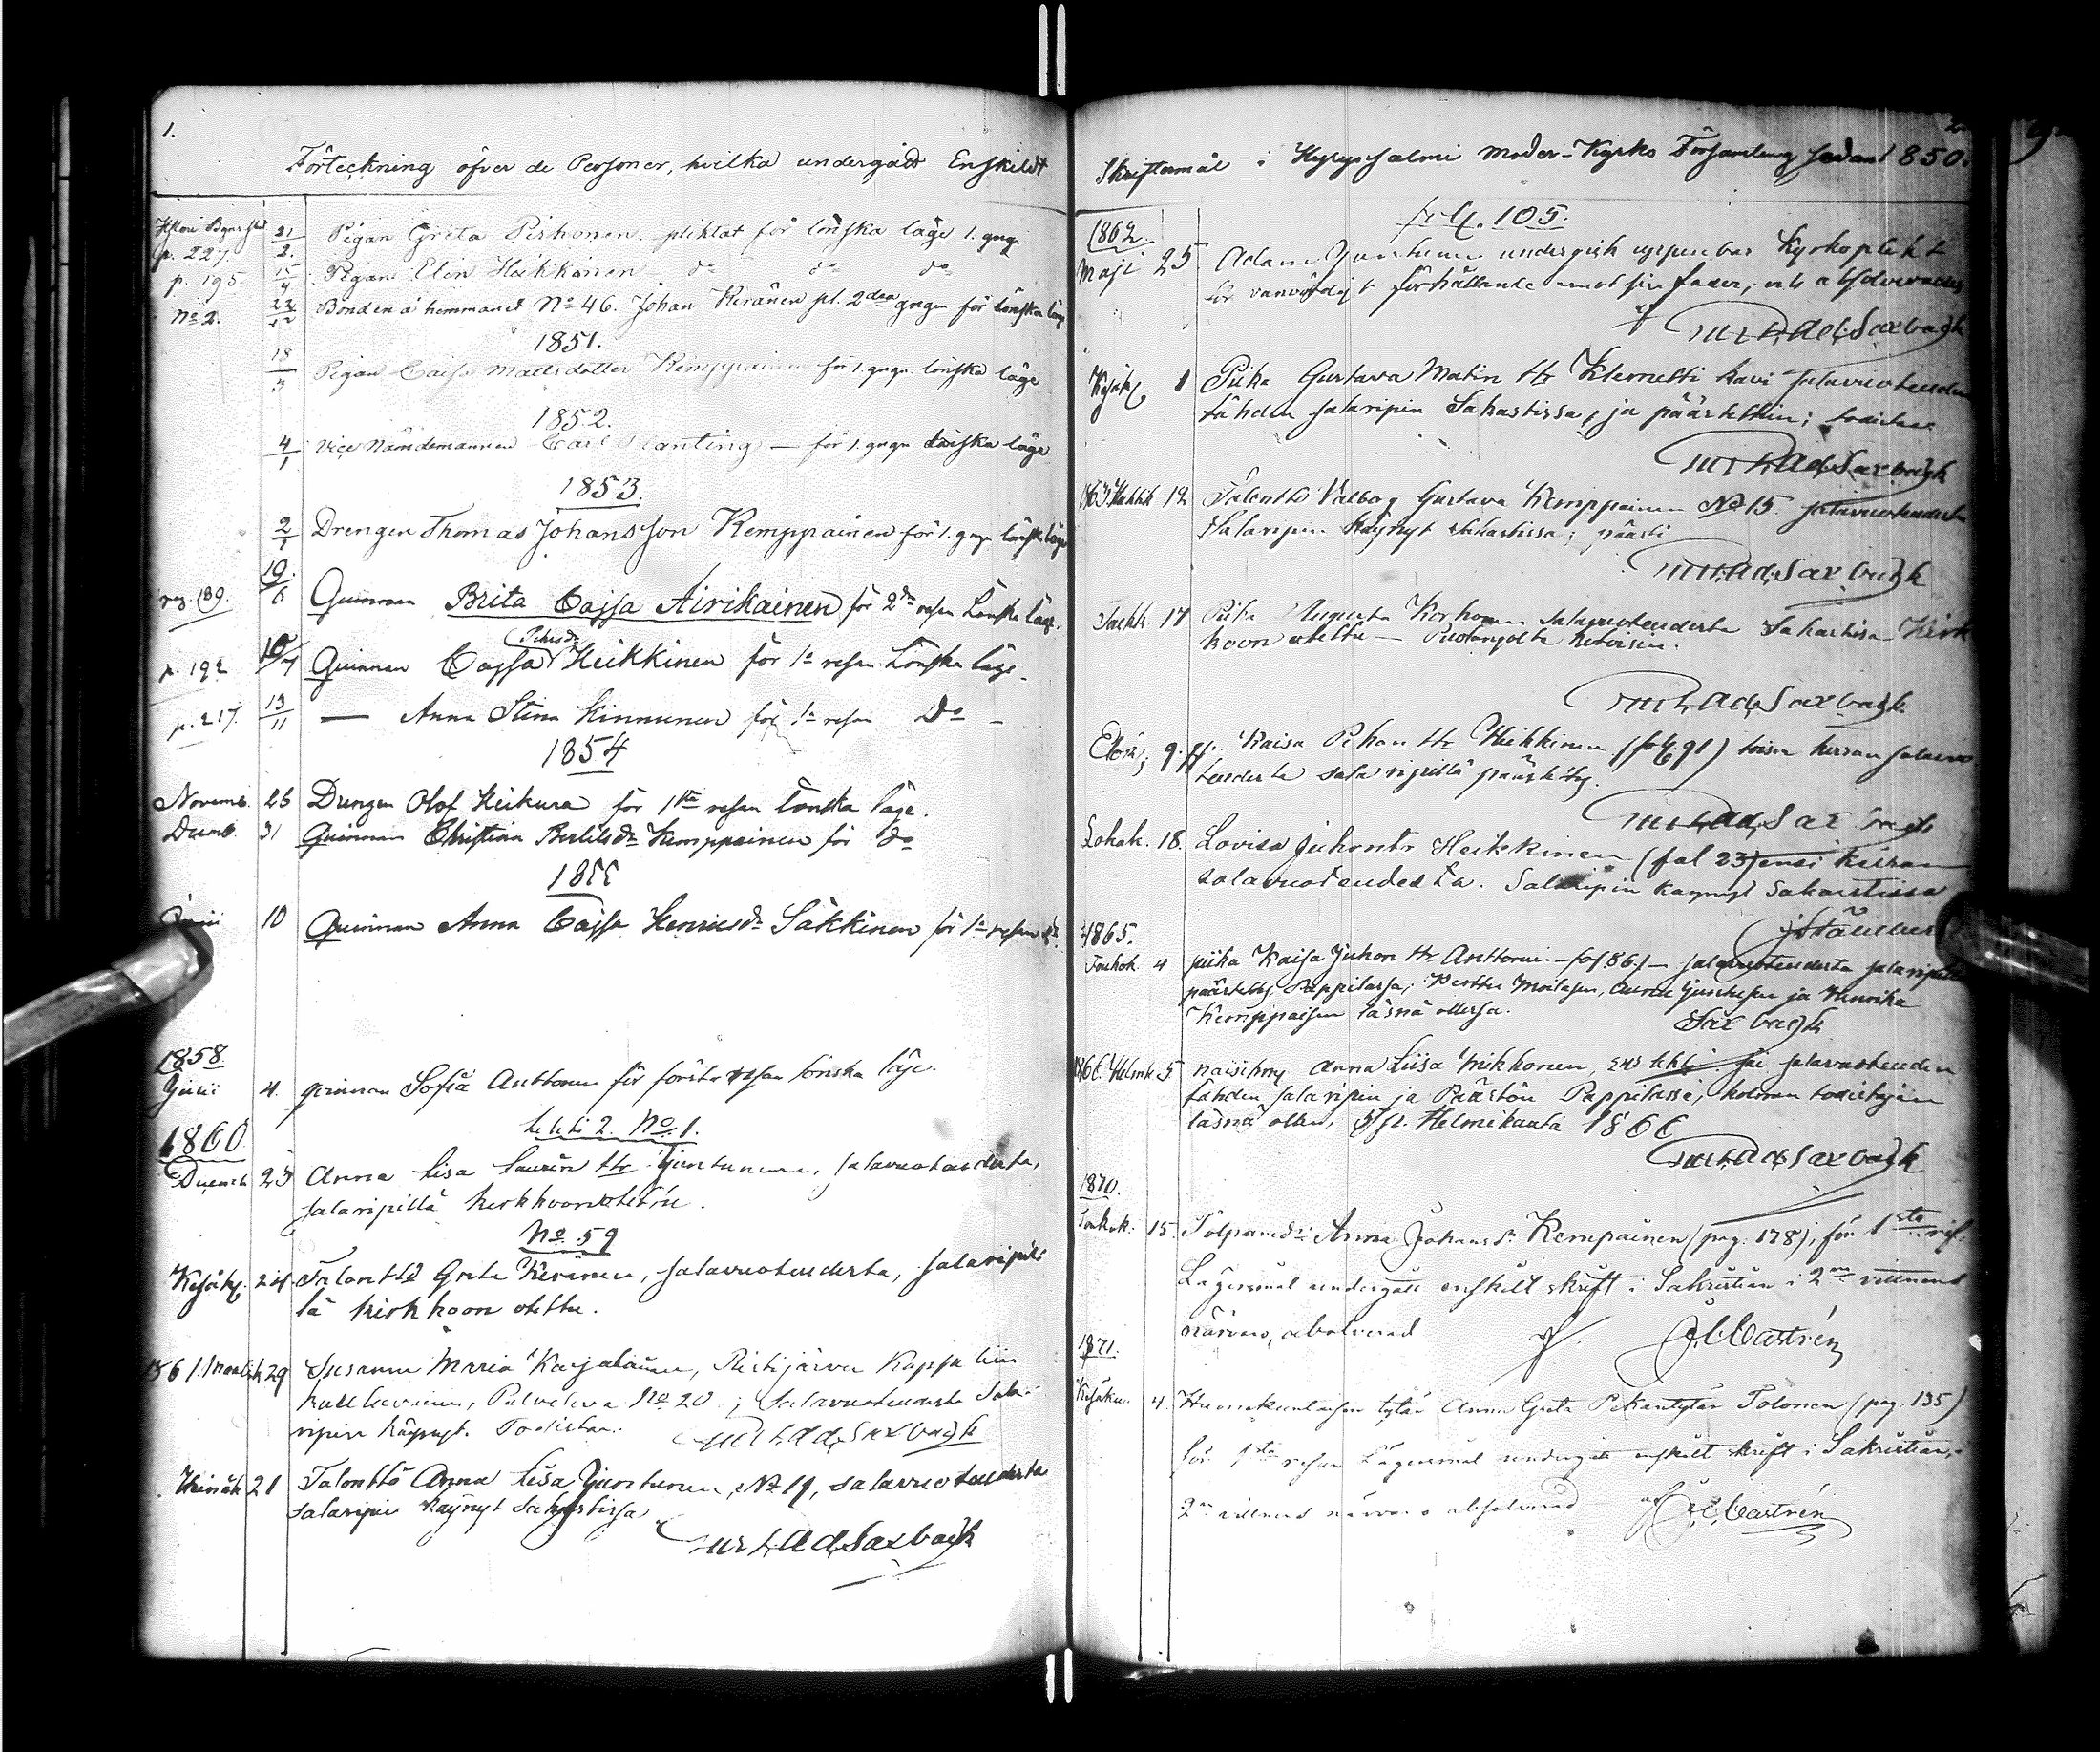 1.
Förteckning öfver de Personer, hvilka undergått Enskildt
p. 227. 21/2. Pigan Greta Pirhonen. pliktat för lönska läge 1. gng.
p. 195 15/4 Pigan Elin Heikkonen do do do
No 2. Bonden å hemmanet No 46. Johan Keränen pl. 2dra gngen för lönska läge
1851.
18/3 Pigan Caisa Mattsdotter Kemppainen för 1. gngn lönska läge
1852.
4/1 Vice Nämndemannen Carl Planting — för 1. gngn lönska läge
1853.
2/1 Drengen Thomas Johansson Kemppainen för 1. gngn lönska läge
pag. 189. 19/6 Quinnan Brita Cajsa Airikainen för 2dra resan Lönska läge.
p. 192 10/7 Quinnan Cajsa Petersdr Heikkinen för 1a resan Lönska läge.
p. 217. 13/11 — Anna Stina Kinnunen för 1a resan Do —
1854
Novemb. 26 Drengen Olof Keikura för 1sta resan lönska läge.
Decemb. 31 Quinnan Christina Bertilsdr Kemppainen för do
1855
Junii 10 Quinnan Anna Cajsa Henricsdr Säkkinen för 1a resan do.
1858.
Junii 4. qvinnan Sofia Anttonen för första resan lönska läge.
lehti 2. No 1.
1860
Decemb 23 Anna Lisa Laurin ttr Juntunen, salavuoteudesta,
salaripillä kirkkoon otettu.
No. 59
Kesäk. 24 Talontto Greta Keränen, salavuoteudesta, salaripil-
lä kirkkoon otettu.
1861. Maalisk 29 Susanna Maria Karjalainen, Ristijärven Kappelin
Palveleva No 20; Salavuoteudesta Sala-
ripin käynyt. Todistaa. Ad. Saxbäck
Heinäk 21 Talonttö Anna Lisa Juntunen, No 19, salavuoteudesta
salaripin käynyt Sakastissa
Ad. Saxbäck
Skriftermål i Hyrynsalmi Moder-Kyrko Församling sedan 1850.
fol. 105.
1862.
Maji 25 Adam Juntunen undergick uppenbar Kyrkoplikt
för vanvördigt förhållande emot sin fader, och absolverades
af Ad. Saxbäck
Kesäk. 1 Piika Gustava Matin ttr Klemetti kävi salavuoteuden
tähden salaripin Sakastissa, ja päästettiin; todistaa
Ad. Saxbäck
1863 Huhtik 12 Talontto Valborg Gustava Kemppainen No 15 salavuoteudesta
Salaripin käynyt Sakastissa; päästi
Ad. Saxbäck
Toukk. 17 Piika Augusta Korhonen salavuoteudesta Sakastissa Kirk
koon otettu — Pudasjoelta kotoisin.
Ad. Saxbäck
Elok; 9. Kaisa Pekan ttr Heikkinen (fol. 91) toisen kerran salavuo
teudesta salaripillä päästetty.
Ad. Saxbäck
Lokak. 18. Lovisa Juhontr Heikkinen (fol 23) ensi kerran
salavuoteudesta. Salaripin käynyt Sakastissa
1865.
Toukok. 4 piika Kaisa Juhon ttr Anttonen. — fol. 86. — salavuoteudesta salaripillä
päästetty Pappilassa, Perttu Moilasen, Juntusen ja Henrika
Kemppaisen läsnä ollessa. Saxbäck
1866. Helmk 5 naisihm. Anna Liisa Mikkonen, sai salavuoteuden
tähden salaripin ja Päästön Pappilassa, kolmen todistajan
läsnä ollen, 5 p. Helmikuuta 1866
Ad. Saxbäck
1870.
Toukok: 15. Anna Johansdr Kempainen (pag. 178), för 1sta res.
Lägersmål undergått enskilt skrift i Sakristian i 2ne vittnens
närvaro, absolverad af. Castrén
1871.
Kesäkuu 4. tytär Anna Greta Pekantytär Tolonen (pag. 135)
för 1sta resan Lägersmål undergått enskilt skrift i Sakristian,
2ne vittnens närvaro absolverad af Castrén